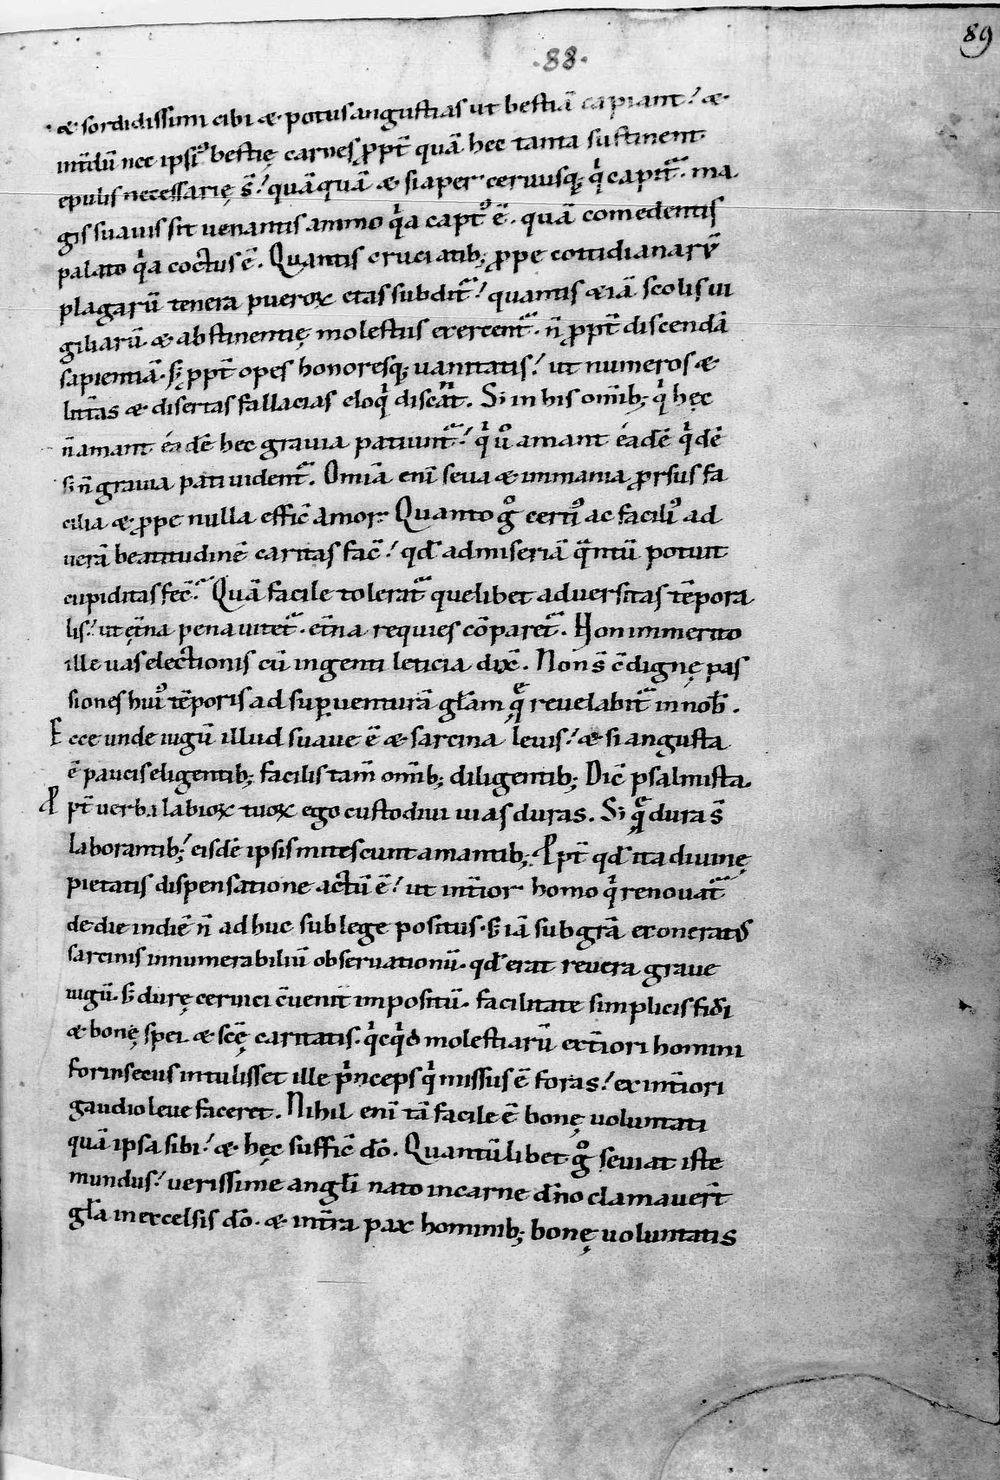 89
·88·
& sordidissimi cibi & potus angustias ut bestiā capiant? &
int̄dū nec ipsi᷒ bestię carnes ꝓpt̄ quā hec tanta sustinent
epulis necessarię s̄? quāquā & si aper ceruusq; q̇ capit᷑. ma
gis suauis sit uenantis animo q̇a capt᷒ ē. quā comedentis
palato q̇a coctus ē. Quantis cruciatib; ꝓpe cottidianarū
plagarū tenera pueroꝝ etas subdit᷑? quantis & iā scolis ui
giliarū & abstinentię molestiis exercent᷑. n̄ ꝓpt̄ discendā
sapientiā. s; ꝓpt̄ opes honoresq; uanitatis? ut numeros &
litt̄as & disertas fallacias eloq̇ discāt. Si in his om̄ib; q̇ hęc
n̄ amant eadē hec grauia patiunt᷑? q̇ u᷒ amant eadē q̇dē
s; n̄ grauia pati uident᷑. Omīa enī seua & immania prorsus fa
cilia & ꝓpe nulla effic̄ amor. Quanto g̊ certi᷒ ac facili᷒ ad
uerā beatitudinē caritas fac̄? qd̄ ad miseriā q̄ntū potuit
cupiditas fec̄? Quā facile tolerat᷑ quelibet aduersitas tēpora
lis? ut ęt̄na pena uitet᷑. et̄na requies cōparet᷑. Non immerito
ille uas electionis cū ingenti leticia dix̄. Non s̄ c̄dignę pas
siones hui᷒ tēporis ad sup̱uenturā gl̄am q̄ reuelabit᷑ in nob̄.
Ecce unde iugū illud suaue ē & sarcina leuis? & si angusta
ē paucis eligentib; facilis tam̄ om̄ib; diligentib; Dic̄ psalmista.
Ꝓpt̄ uerba labioꝝ tuoꝝ ego custodiui uias duras. Si q̄ dura s̄
laborantib; eisdē ipsis mitescunt amantib; Ꝓpt̄ qd̄ ita diuinę
pietatis dispensatione actū ē? ut int̄ior homo q̇ renouat᷑
de die in diē n̄ adhuc sub lege positus. s; iā sub gr̄a exoneratis
sarcinis innumerabiliū obseruationū. qd̄ erat reuera graue
iugū. s; durę ceruici c̄uenit impositū. facilitate simplicis fid̄i
& bonę spei & sc̄ę caritatis. q̇cq̇d molestiarū ext̄iori homini
forinsecus intulisset ille p̍nceps q̇ missus ē foras? ex int̄iori
gaudio leue faceret. Nihil enī tā facile ē bonę uoluntati
quā ipsa sibi? & hęc suffic̄ dō. Quantūlibet g̊ seuiat iste
mundus? uerissime angl̄i nato in carne dn̄o clamauer̄t
gl̄a in excelsis dō. & in t̄ra pax hominib; bonę uoluntatis